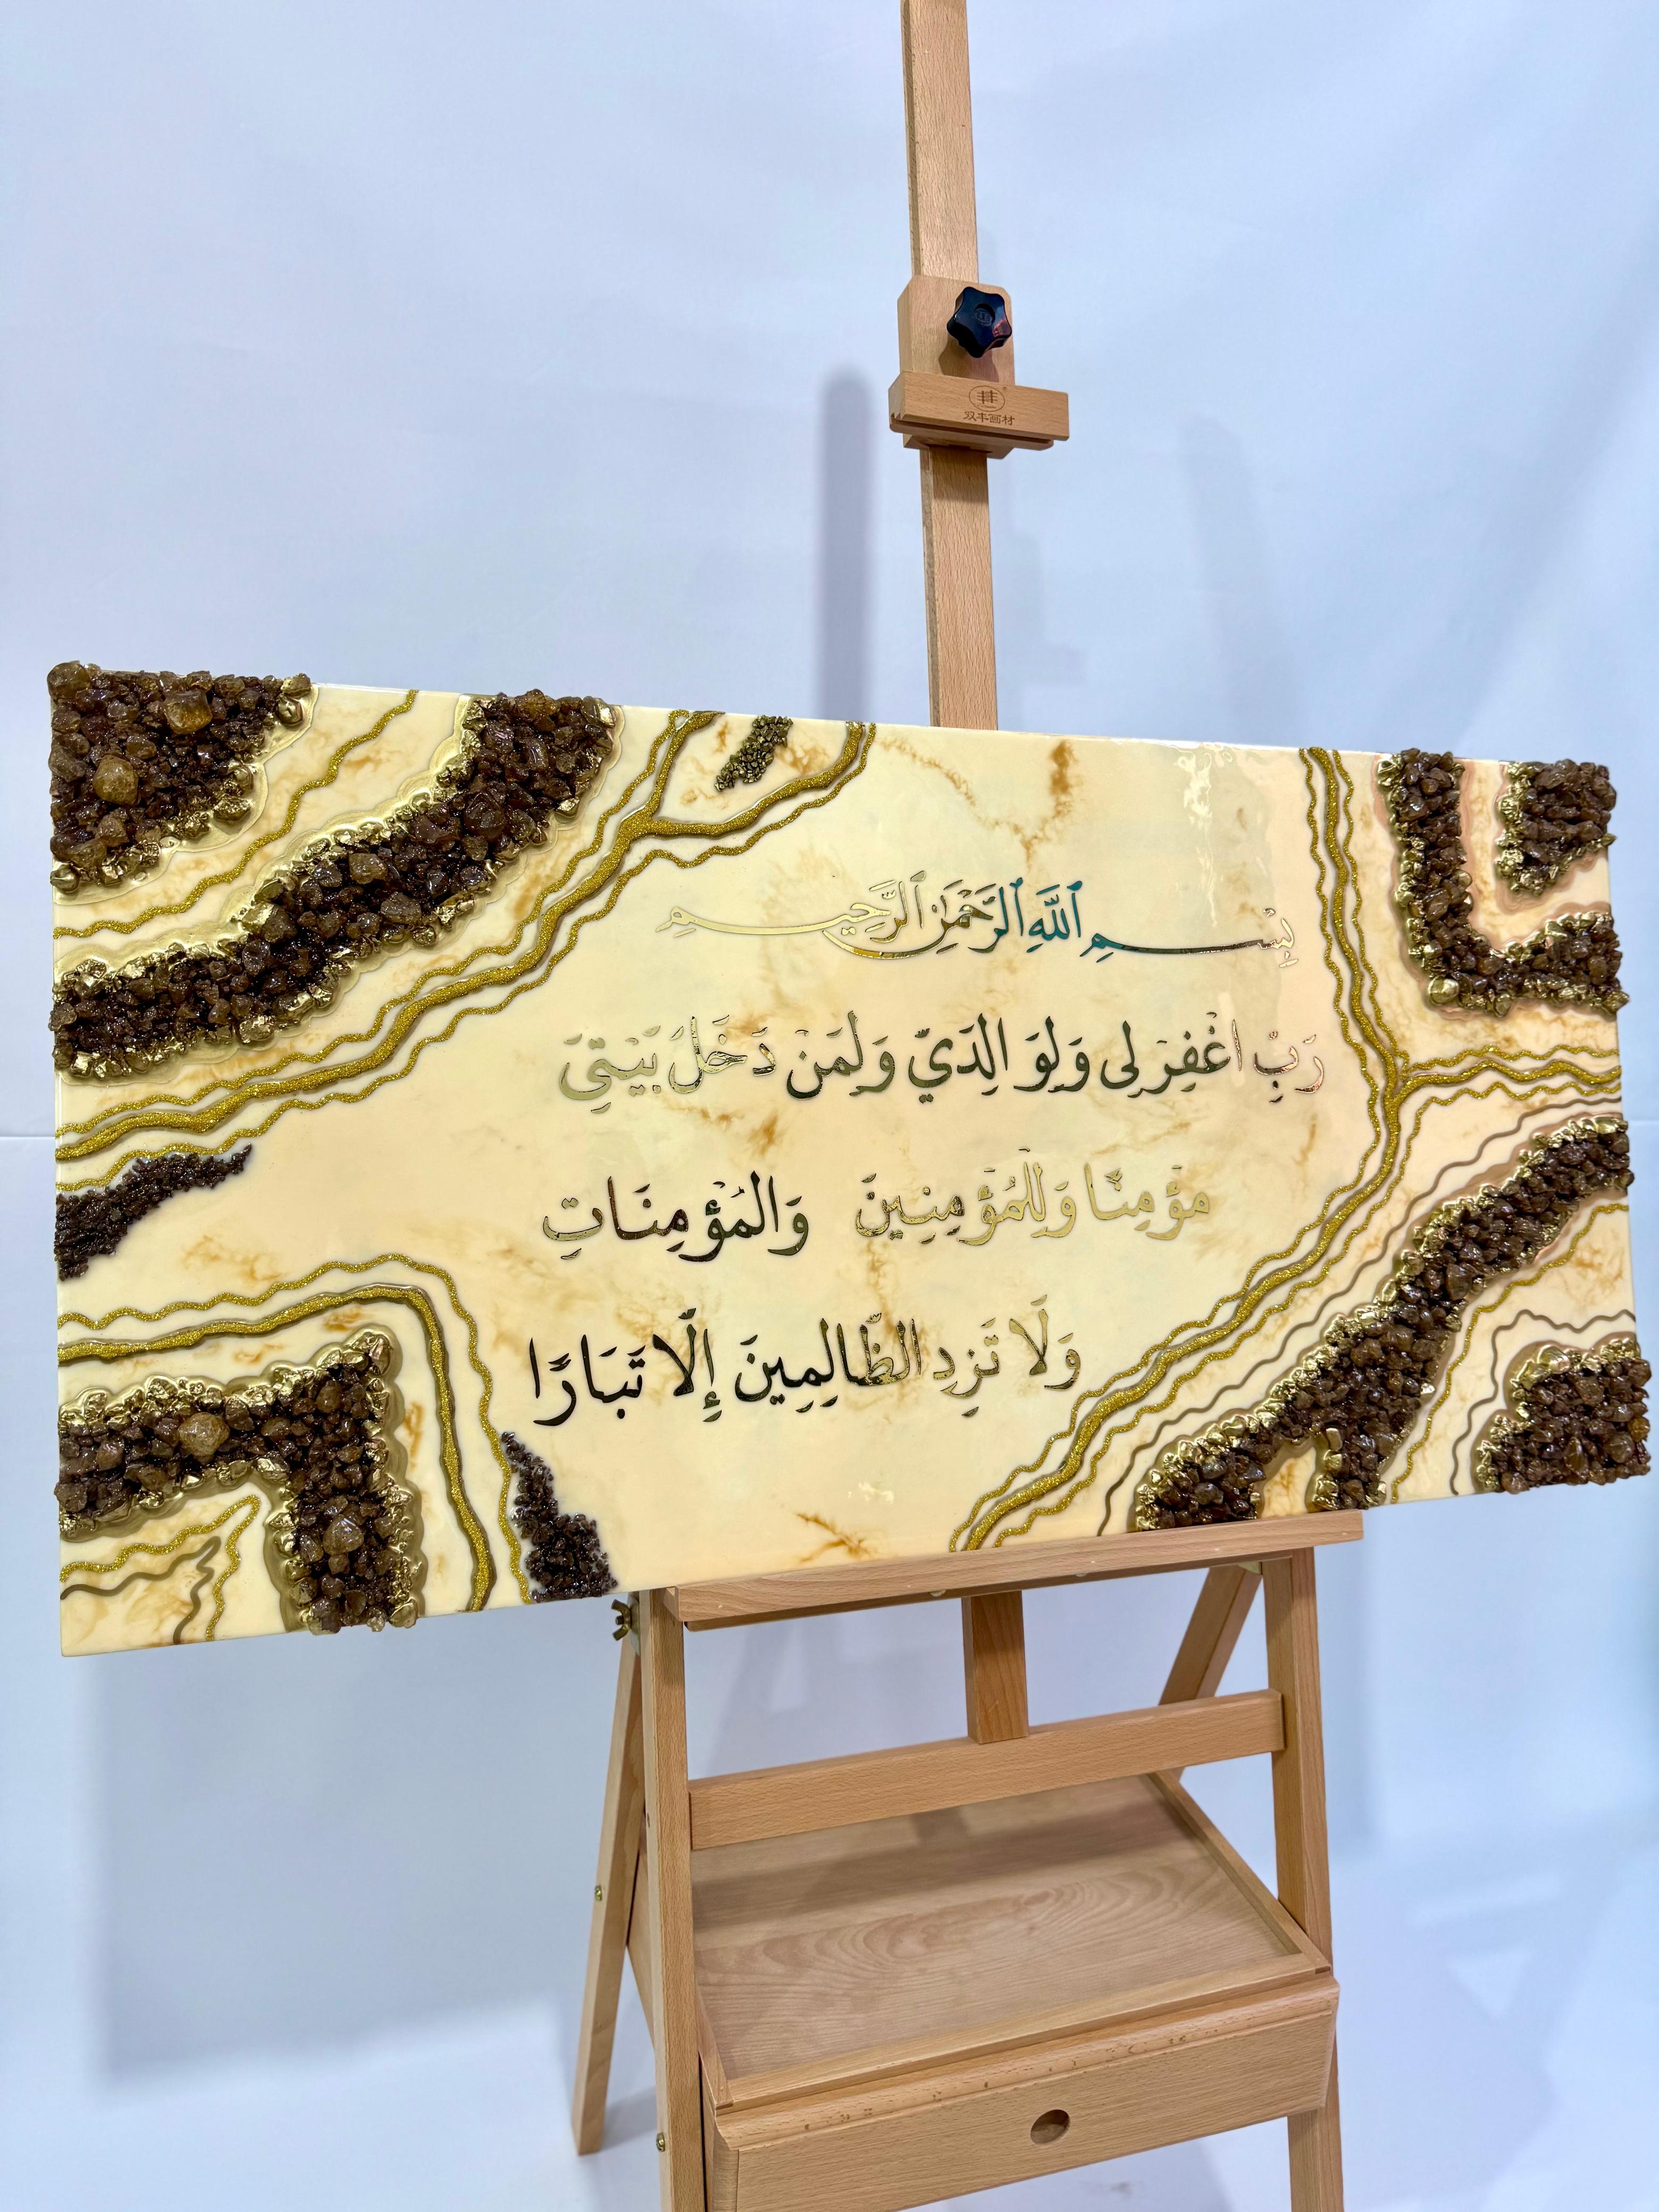 双丰画材
بِسْمِ ٱللَّهِ ٱلرَّحْمَٰنِ ٱلرَّحِيمِ
رَبِّ اغْفِرْ لِى وَلِوَ الِدَيَّ وَلِمَنْ دَخَلَ بَيْتِىَ
مُؤْمِنًا وَلِلْمُؤْمِنِينَ وَالْمُؤْمِنَاتِ
وَلَا تَزِدِ الظَّالِمِينَ إِلَّا تَبَارًا